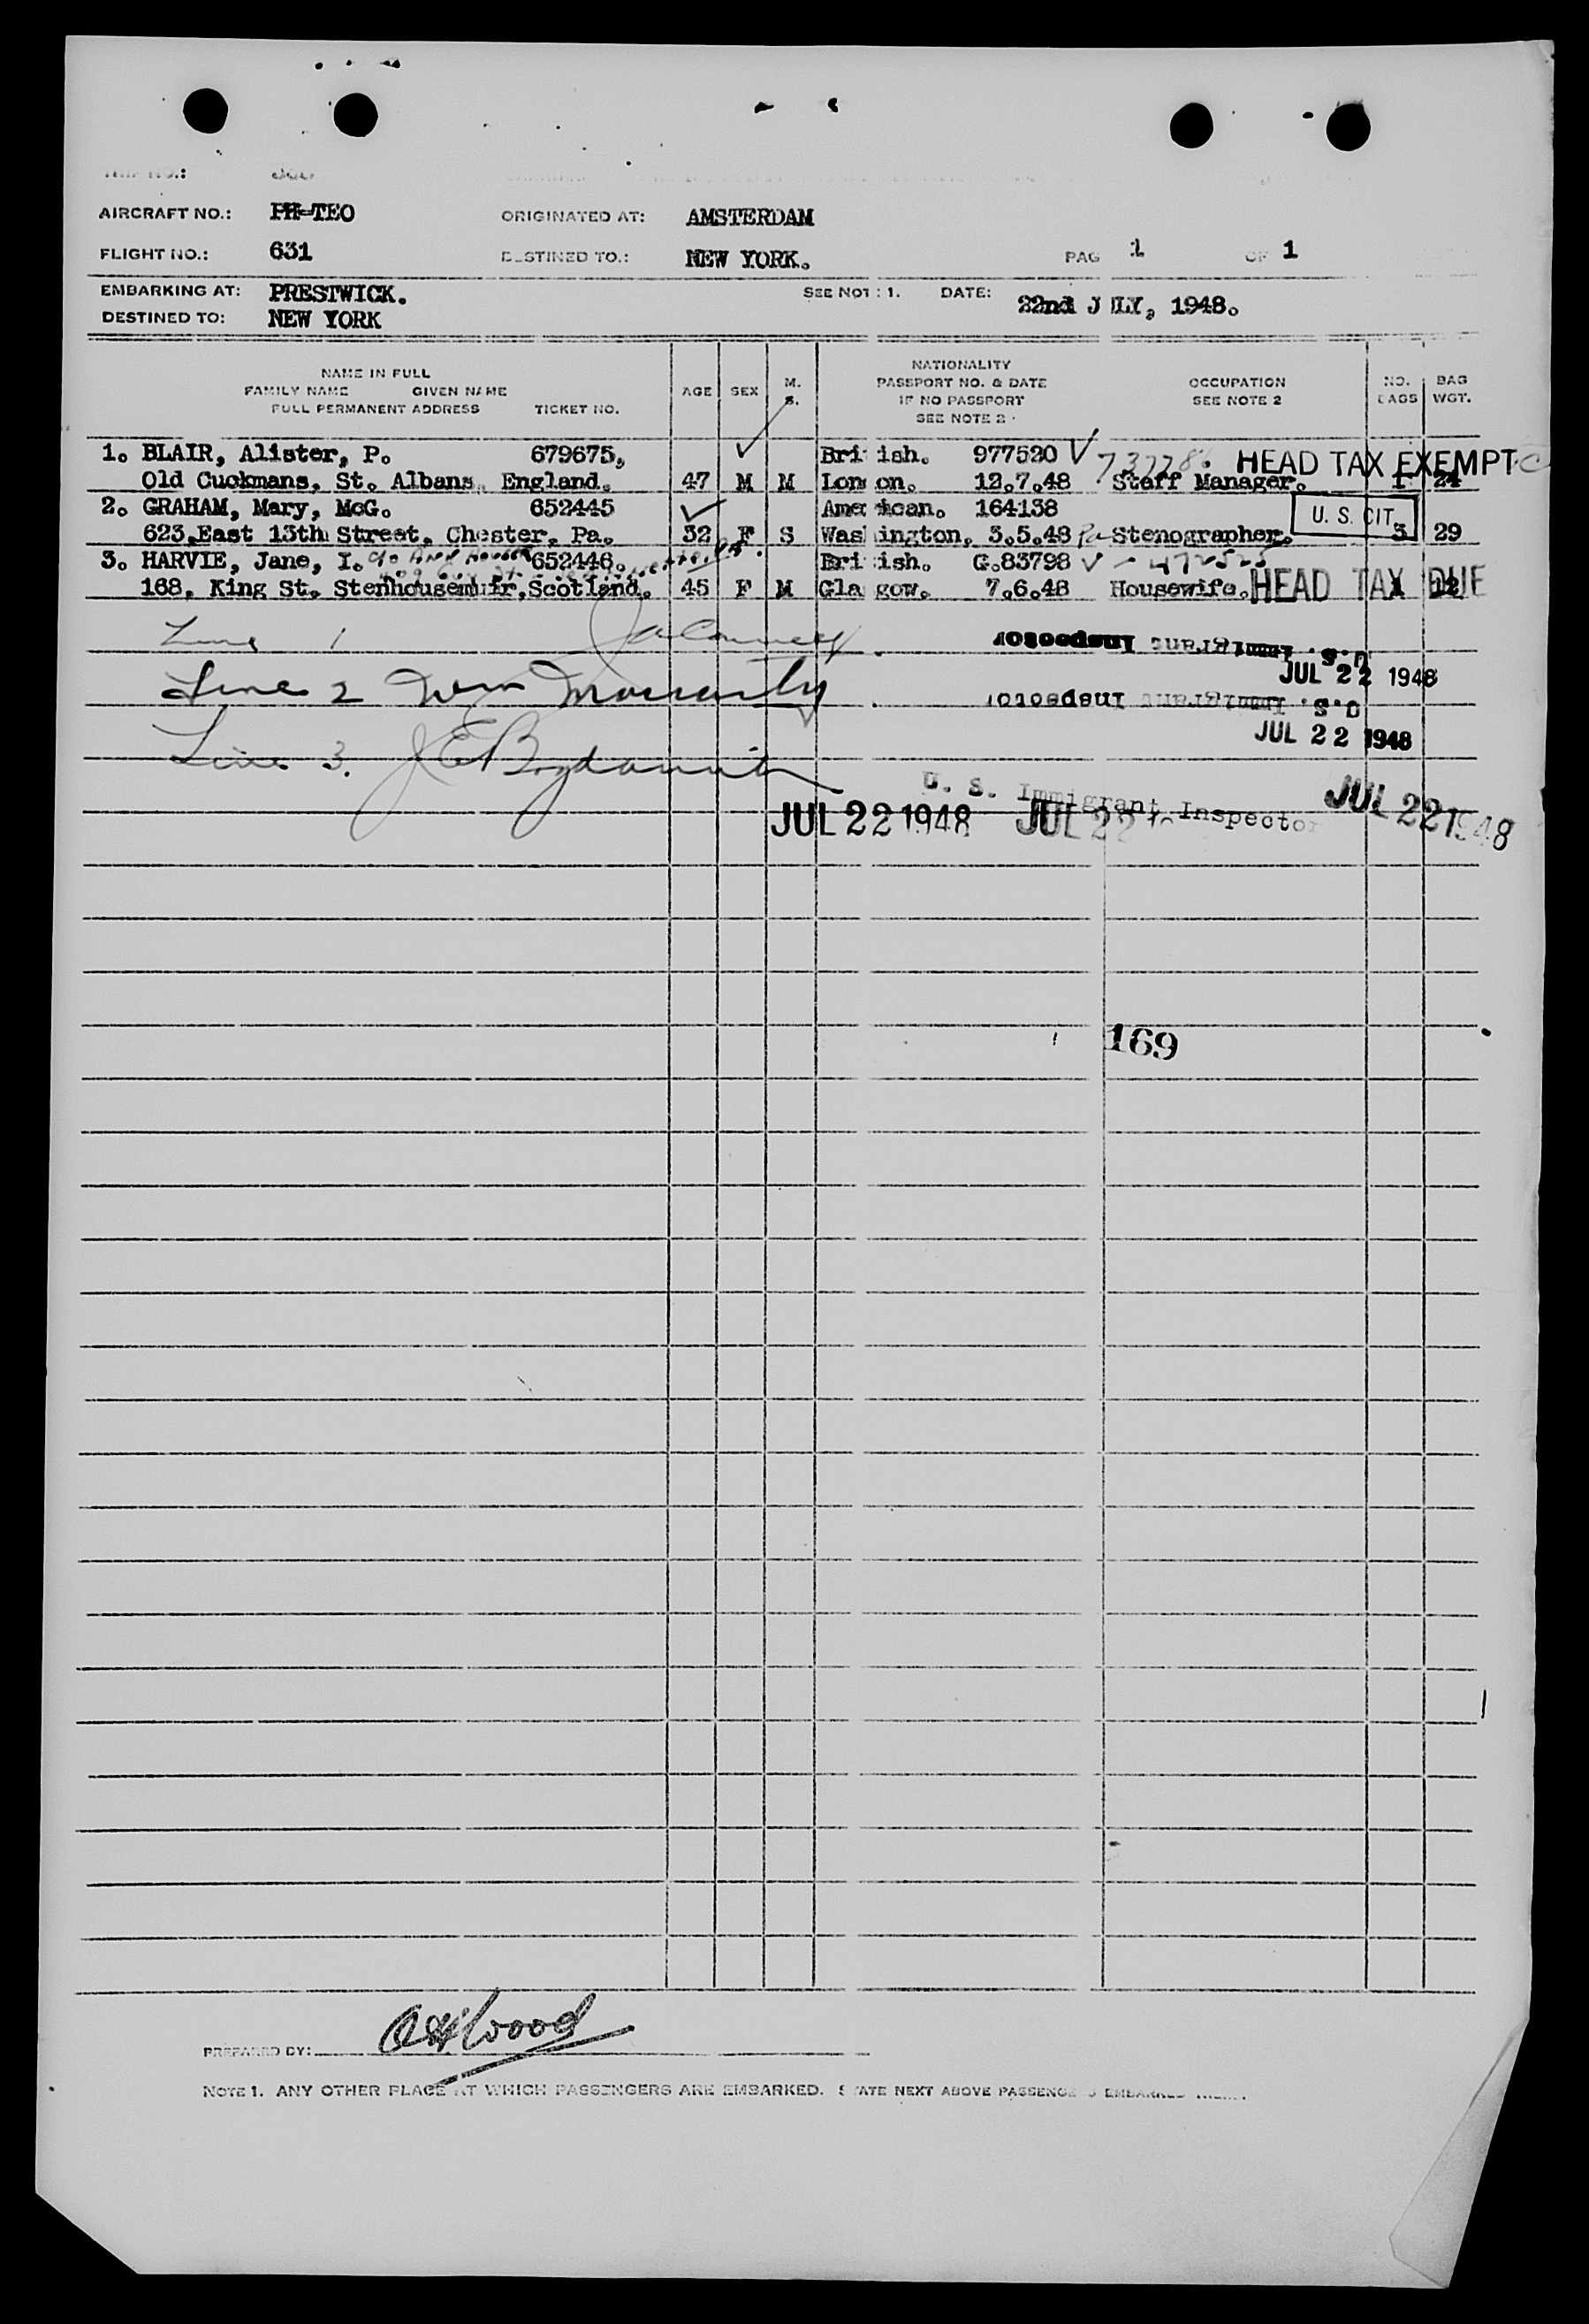 AIRCRAFT NO.: PH-TEO ORIGINATED AT: AMSTERDAM
FLIGHT NO.: 631 DESTINED TO.: NEW YORK. PAG 1 OF 1
EMBARKING AT: PRESTWICK. SEE NOT : 1. DATE: 22nd J ULY, 1948.
DESTINED TO: NEW YORK
NAME IN FULL
FAMILY NAME GIVEN NAME
FULL PERMANENT ADDRESS TICKET NO.
AGE SEX M. S.
NATIONALITY
PASSPORT NO. & DATE
IF NO PASSPORT
SEE NOTE 2
OCCUPATION
SEE NOTE 2
NO. BAGS
BAG WGT.
1. BLAIR, Alister, P. 679675, British. 977520 HEAD TAX EXEMPT
Old Cuckmans, St. Albans, England. 47 M M London. 12.7.48 Staff Manager. 1 24
2. GRAHAM, Mary, McG. 652445 American. 164138 U. S. CIT.
623,East 13th Street, Chester, Pa. 32 F S Washington. 3.5.48 Stenographer. 3 29
3. HARVIE, Jane, I. 652446. British. G.83798
168, King St. Stenhousemuir,Scotland. 45 F M Glasgow. 7.6.48 Housewife. 1 12 HEAD TAX DUE
Line 1
U.S. Immigrant Inspector
JUL 22 1948
Line 2 Wm Moriarity
U.S. Immigrant Inspector
JUL 22 1948
Line 3.
U. S. Immigrant Inspector
JUL 22 1948 JUL 22 JUL 22 1948
169
PREPARED BY:
NOTE 1. ANY OTHER PLACE AT WHICH PASSENGERS ARE EMBARKED. STATE NEXT ABOVE PASSENGERS EMBARKED